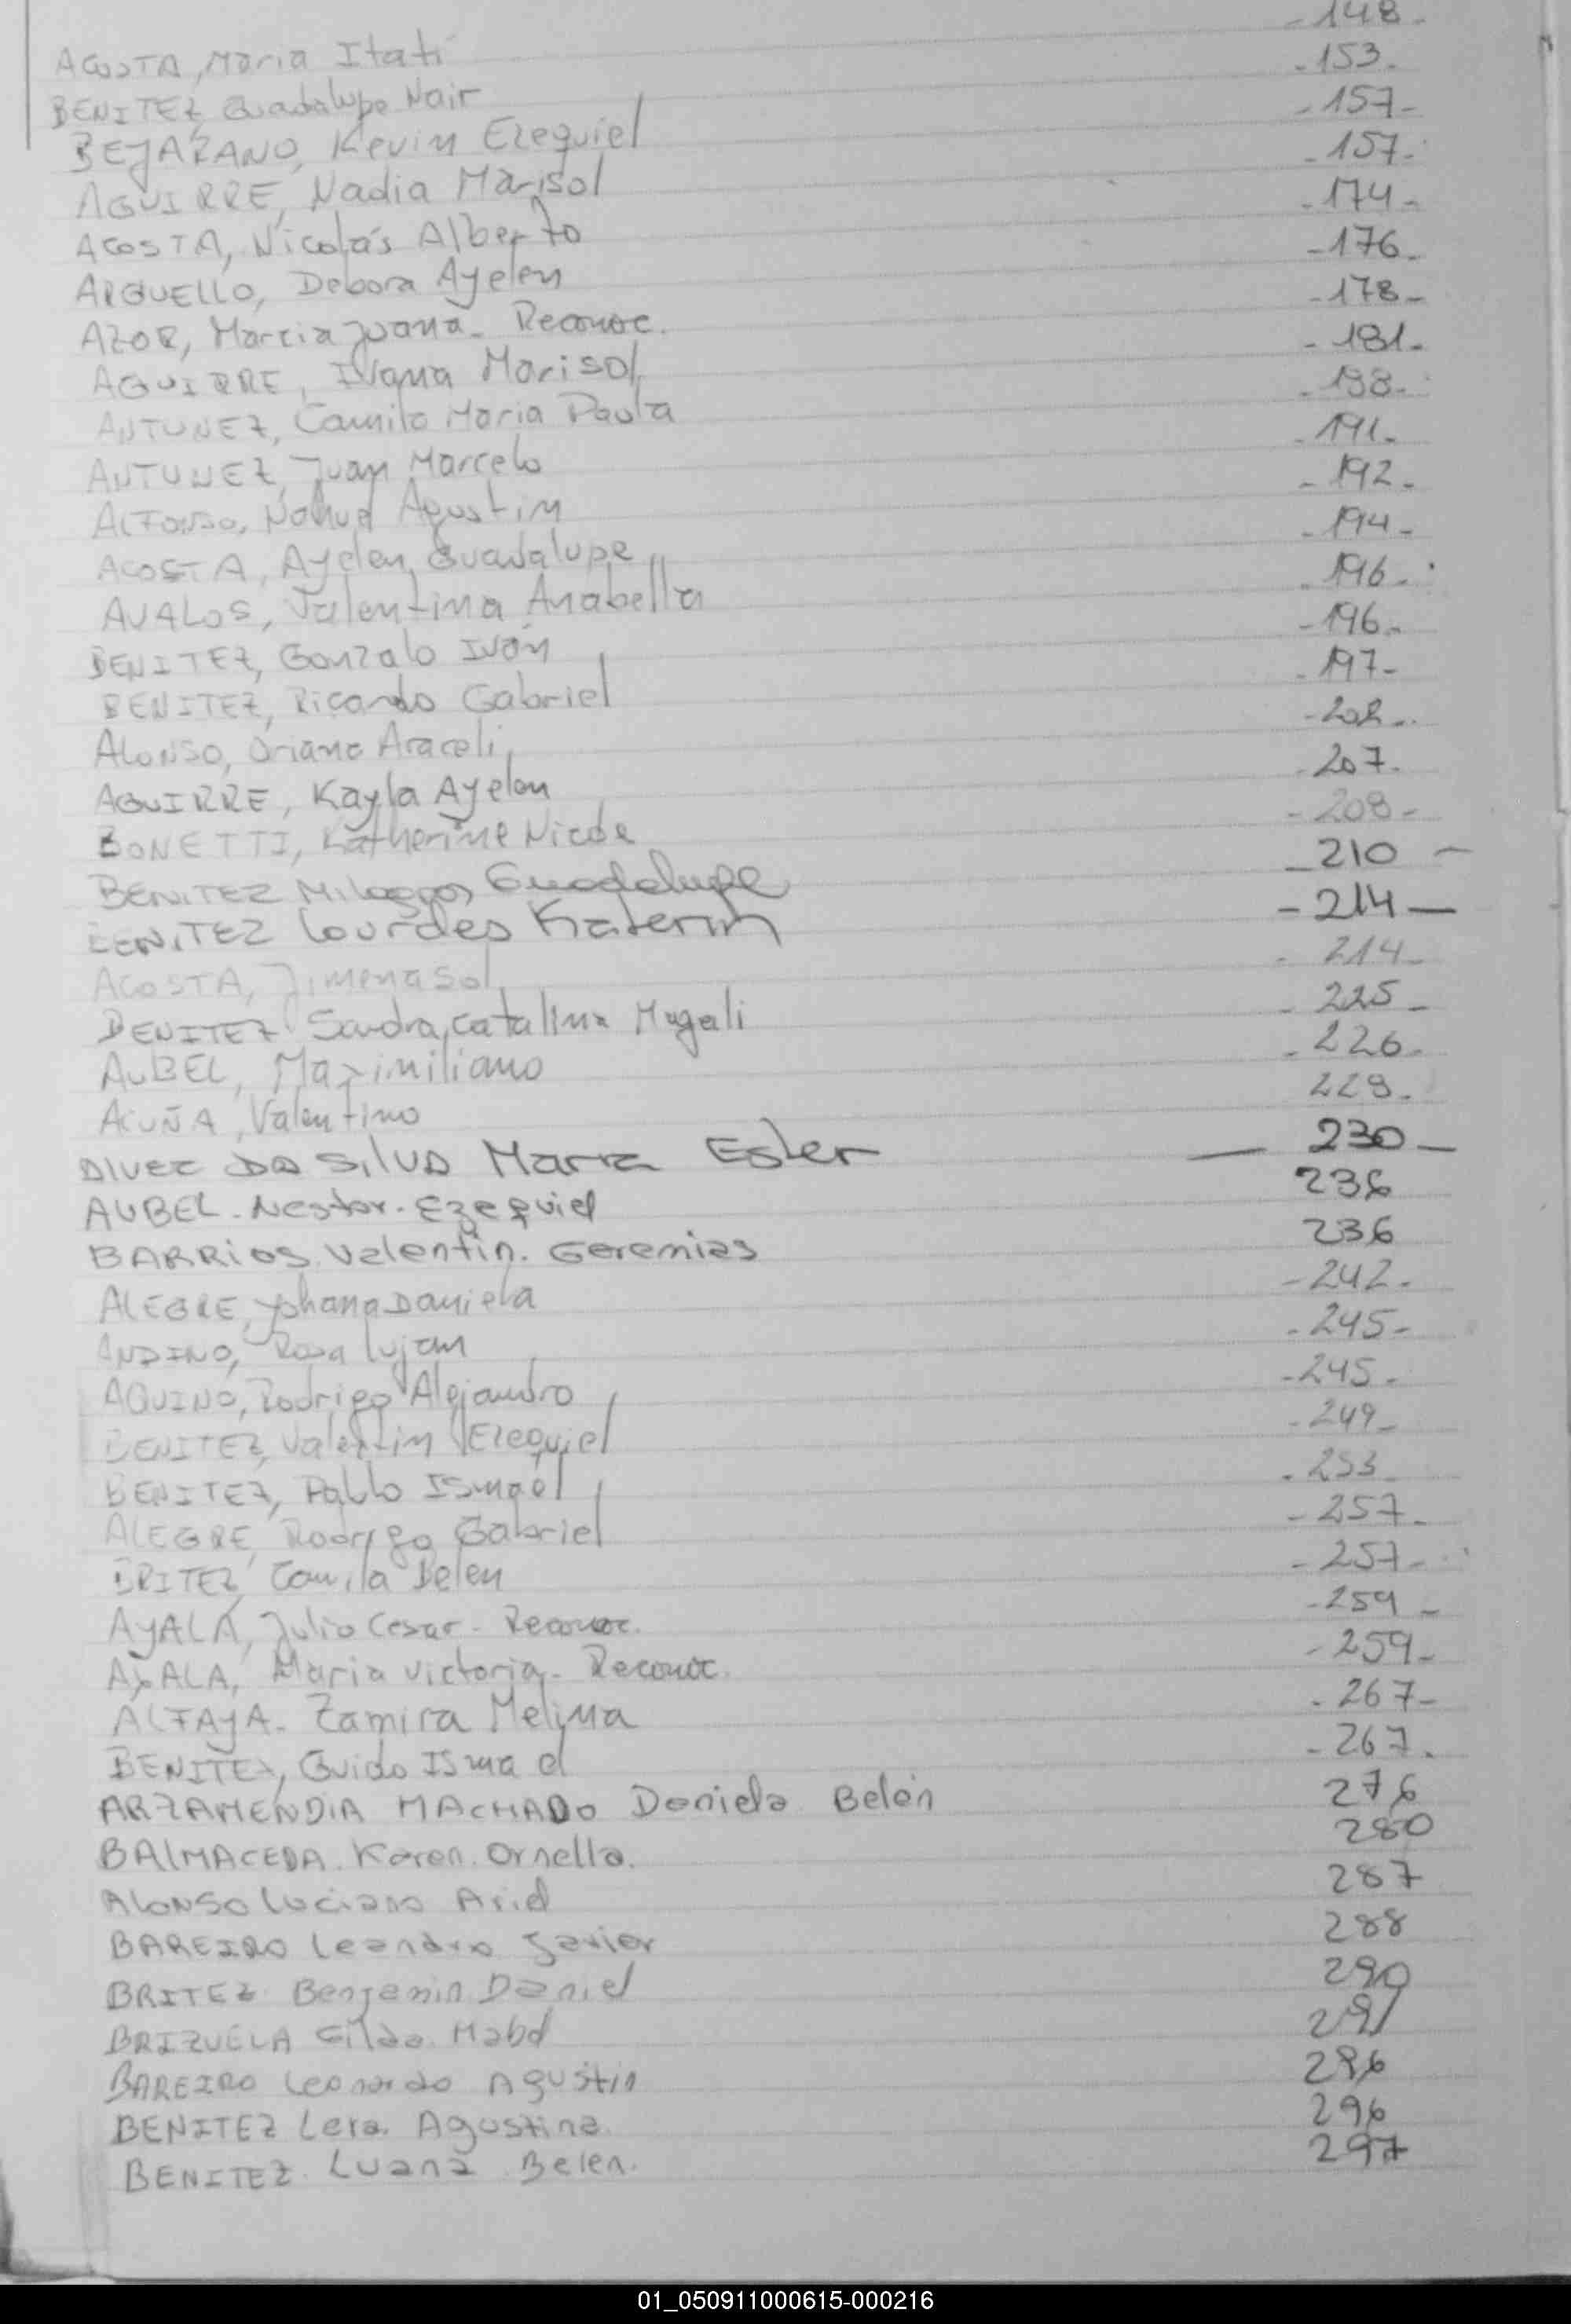 ACOSTA, Maria Itatí - 148 -
BENITEZ, Guadalupe Nair - 153 -
BEJARANO, Kevin Ezequiel - 157 -
AGUIRRE, Nadia Marisol - 157 -
ACOSTA, Nicolás Alberto - 174 -
ARGUELLO, Debora Ayelen - 176 -
AZOR, Marcia Juana - Reconoc. - 178 -
AGUIRRE, Ivana Marisol - 181 -
ANTUNEZ, Camila Maria Paula - 188 -
ANTUNEZ, Juan Marcelo - 191 -
ALFONSO, Nahuel Agustin - 192 -
ACOSTA, Ayelen Guadalupe - 194 -
AVALOS, Valentina Anabella - 196 -
BENITEZ, Gonzalo Iván - 196 -
BENITEZ, Ricardo Gabriel - 197 -
ALONSO, Oriana Araceli - 202 -
AGUIRRE, Kayla Ayelen - 207 -
BONETTI, Katherine Nicole - 208 -
BENITEZ Milagros Guadalupe - 210 -
BENITEZ Lourdes Katerin - 214 -
ACOSTA, Jimena Sol - 214 -
BENITEZ Sandra, Catalina Magali - 225 -
AUBEL, Maximiliano - 226 -
ACUÑA, Valentino 229 -
DA SILVA Maria Ester - 230 -
AUBEL - Nestor - Ezequiel 236
BARRIOS Valentin. Geremias 236
ALEGRE, Yohana Daniela - 242 -
ANDINO, Rosa Lujan - 245 -
AQUINO, Rodrigo Alejandro - 245 -
BENITEZ, Valentin Ezequiel - 249 -
BENITEZ, Pablo Ismael - 253
ALEGRE, Rodrigo Gabriel - 257 -
BRITEZ, Camila Belen - 257 -
AYALA, Julio Cesar - Reconoc. - 259 -
AYALA, Maria Victoria - Reconoc. - 259 -
ALFAYA - Zamira Melina - 267 -
BENITEZ, Guido Ismael - 267 -
ARZAMENDIA MACHADO Daniela Belén 276
BALMACEDA. Karen. Ornella. 280
ALONSO Luciano Ariel 287
BAREIRO Leandro Javier 288
BRITEZ Benjamin Daniel 290
BRIZUELA Gilda Mabel 291
BAREIRO Leonardo Agustin 296
BENITEZ Lera Agustina 296
BENITEZ Luana Belen. 297
01_050911000615-000216